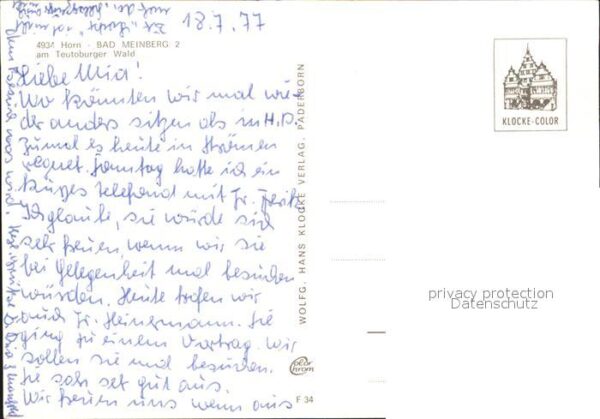 18.7.77
4934 Horn - BAD MEINBERG 2
am Teutoburger Wald
Liebe Mia!
Wo könnten wir mal wie-
der anders sitzen als in H.D.
zumal es heute in Strömen
regnet. Sonntag hatte ich ein
kurzes Telefonat mit Fr.
Ich glaube, sie würde sich
sehr freuen, wenn wir sie
bei Gelegenheit mal besuchen
würden. Heute trafen wir
auch Fr. Heinermann. Sie
ging zu einem Vortrag. Wir
sollen sie mal besuchen.
Sie sah sehr gut aus.
Wir freuen uns wenn aus
dem Besuch was wird.
WOLFG. HANS KLOCKE VERLAG, PADERBORN
KLOCKE-COLOR
privacy protection
Datenschutz
color
chrom
F 34